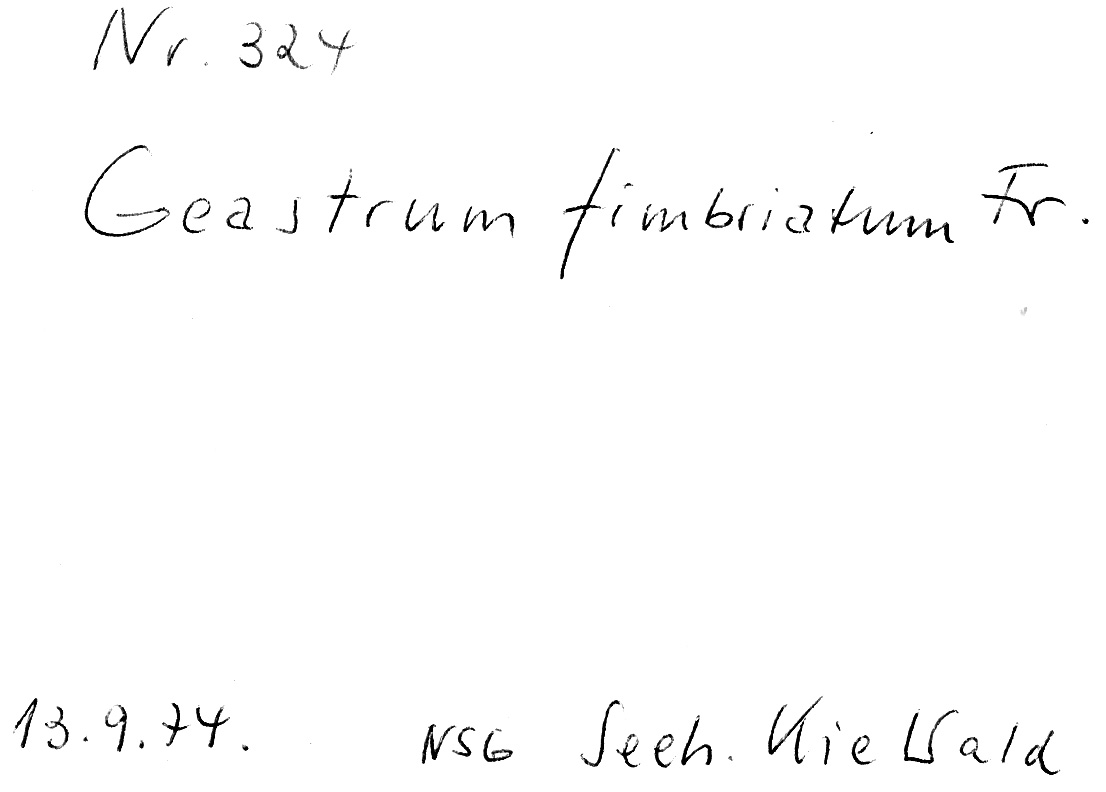 Nr. 324
Geastrum fimbriatum Fr.
13.9.74. NSG Seeh. Kie Wald